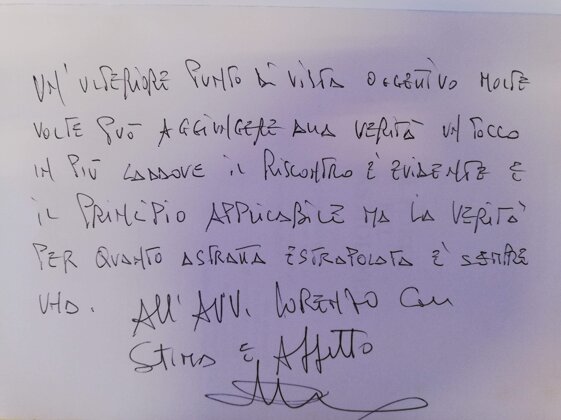 UN' ULTERIORE PUNTO DI VISTA OGGETTIVO MOLTE
VOLTE PUÒ AGGIUNGERE ALLA VERITÀ UN TOCCO
IN PIÙ LADDOVE IL RISCONTRO È EVIDENTE E
IL PRINCIPIO APPLICABILE MA LA VERITÀ
PER QUANTO ASTRATTA ESTRAPOLATA È SEMPRE
UNA. ALL'AVV. LORENZO CON
STIMA E AFFETTO